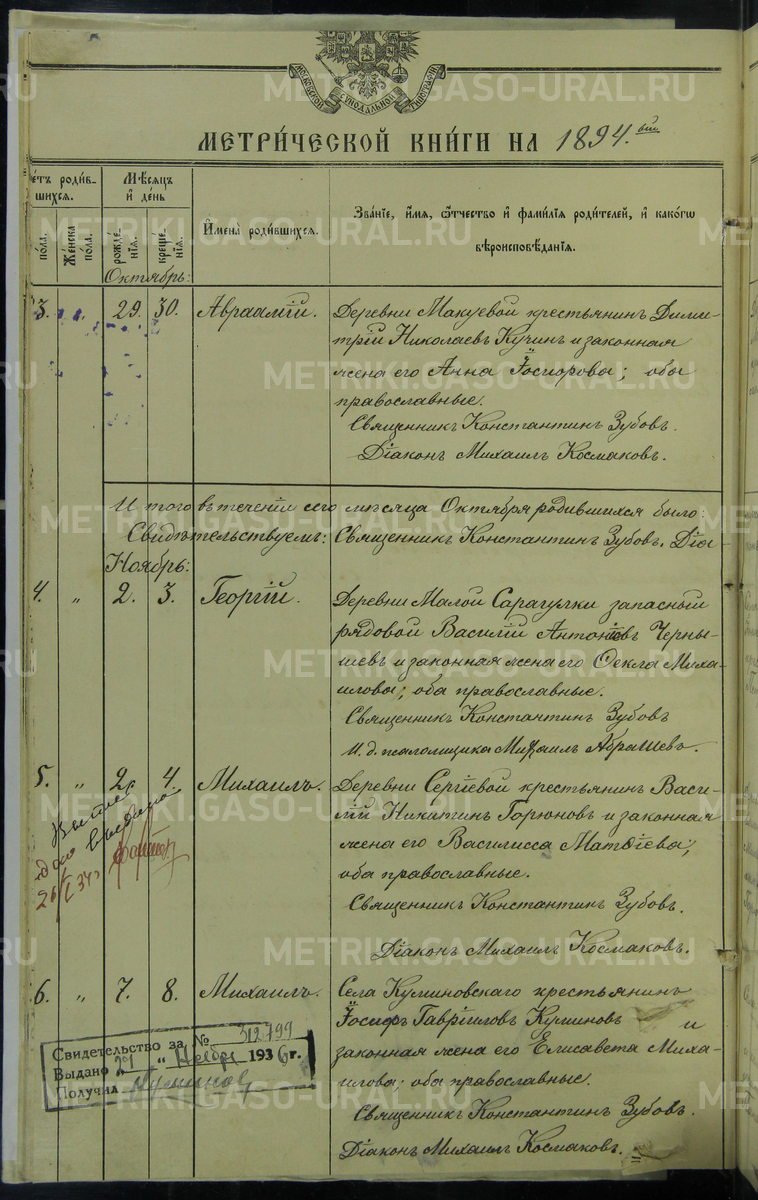 МОСКОВСКОЙ СѴНОДАЛЬНОЙ ТИПОГРАФІИ
МЕТРИ́ЧЕСКОЙ КНИ́ГИ НА 1894.ый
е́тъ роди́в-
шихся.
Мѣ́сяцъ
и҆ де́нь
по́ла.
Же́нска
по́ла.
рожде́-
нія.
креще́-
нія.
И҆мена̀ роди́вшихся.
Зва́ніе, и҆́мя, ѻ҆́тчество и҆ фами́лія роди́телей, и҆ како́гѡ
вѣроисповѣ́данія.
Октябрь:
3. " 29. 30. Авраамій. Деревни Макуевой крестьянинъ Дими-
трій Николаевъ Кучинъ и законная
жена его Анна Іосифова; оба
православные.
Священникъ Константинъ Зубовъ.
Діаконъ Михаилъ Космаковъ.
Итого въ теченіи сего мѣсяца Октября родившихся было:
Свидѣтельствуемъ: Священникъ Константинъ Зубовъ. Діа-
Ноябрь:
4. " 2. 3. Георгій. Деревни Малой Сарагулки запасный
рядовой Василій Антоніевъ Черны-
шевъ и законная жена его Ѳекла Миха-
илова; оба православные.
Священникъ Константинъ Зубовъ
И. д. псаломщика Михаилъ Абрашевъ.
5. " 2. 4. Михаилъ. Деревни Сергіевой крестьянинъ Васи-
лій Никитинъ Горюновъ и законная
жена его Василисса Матѳіева;
оба православные.
Священникъ Константинъ Зубовъ.
Діаконъ Михаилъ Космаковъ.
26/I 34
6. " 7. 8. Михаилъ. Села Куминовскаго крестьянинъ
Іосифъ Гавріиловъ Куминовъ и
законная жена его Елисавета Миха-
илова; оба православные.
Священникъ Константинъ Зубовъ.
Діаконъ Михаилъ Космаковъ.
Свидетельство за № 312799
Выдано "29" Ноября 1936 г.
Получил Куминов
METRIKI.GASO-URAL.RU